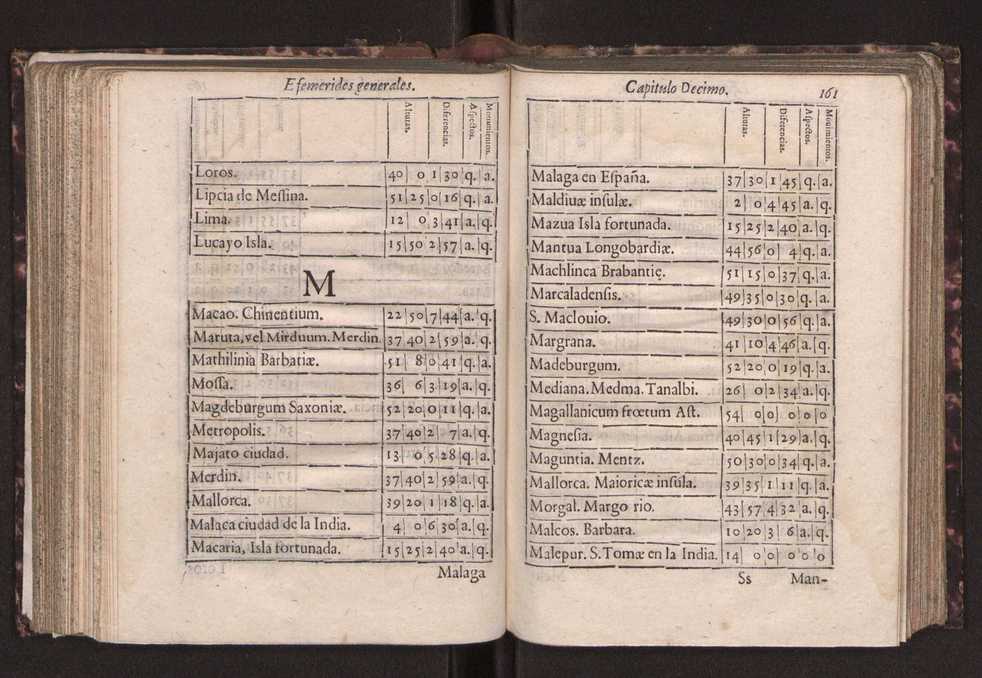 Efemerides generales.
Alturas. Diferencias. Aspectos. Mouimientos.
Loros. 40 0 1 30 q. a.
Lipcia de Meſsina. 51 25 0 16 q. a.
Lima. 12 0 3 41 a. q.
Lucayo Isla. 15 50 2 57 a. q.
M
Macao. Chinentium. 22 50 7 44 a. q.
Maruta, vel Mirduum. Merdin. 37 40 2 59 a. q.
Mathilinia Barbatiæ. 51 8 0 41 q. a.
Moſſa. 36 6 3 19 a. q.
Magdeburgum Saxoniæ. 52 20 0 11 q. a.
Metropolis. 37 40 2 7 a. q.
Majato ciudad. 13 0 5 28 q. a.
Merdin. 37 40 2 59 a. q.
Mallorca. 39 20 1 18 q. a.
Malaca ciudad de la India. 4 0 6 30 a. q.
Macaria, Isla fortunada. 15 25 2 40 a. q.
Malaga
Capitulo Decimo. 161
Alturas. Diferencias. Aſpectos. Mouimientos.
Malaga en Eſpaña. 37 30 1 45 q. a.
Maldiuæ inſulæ. 2 0 4 45 a. q.
Mazua Isla fortunada. 15 25 2 40 a. q.
Mantua Longobardiæ. 44 56 0 4 q. a.
Machlinca Brabantię. 51 15 0 37 q. a.
Marcaladenſis. 49 35 0 30 q. a.
S. Maclouio. 49 30 0 56 q. a.
Margrana. 41 10 4 46 a. q.
Madeburgum. 52 20 0 19 q. a.
Mediana. Medma. Tanalbi. 26 0 2 34 a. q.
Magallanicum frœtum Aſt. 54 0 0 0 0 0
Magneſia. 40 45 1 29 a. q.
Maguntia. Mentz. 50 30 0 34 q. a.
Mallorca. Maioricæ inſula. 39 35 1 11 q. a.
Morgal. Margo rio. 43 57 4 32 a. q.
Malcos. Barbara. 10 20 3 6 a. q.
Malepur. S. Tomæ en la India. 14 0 0 0 0 0
Ss Man-